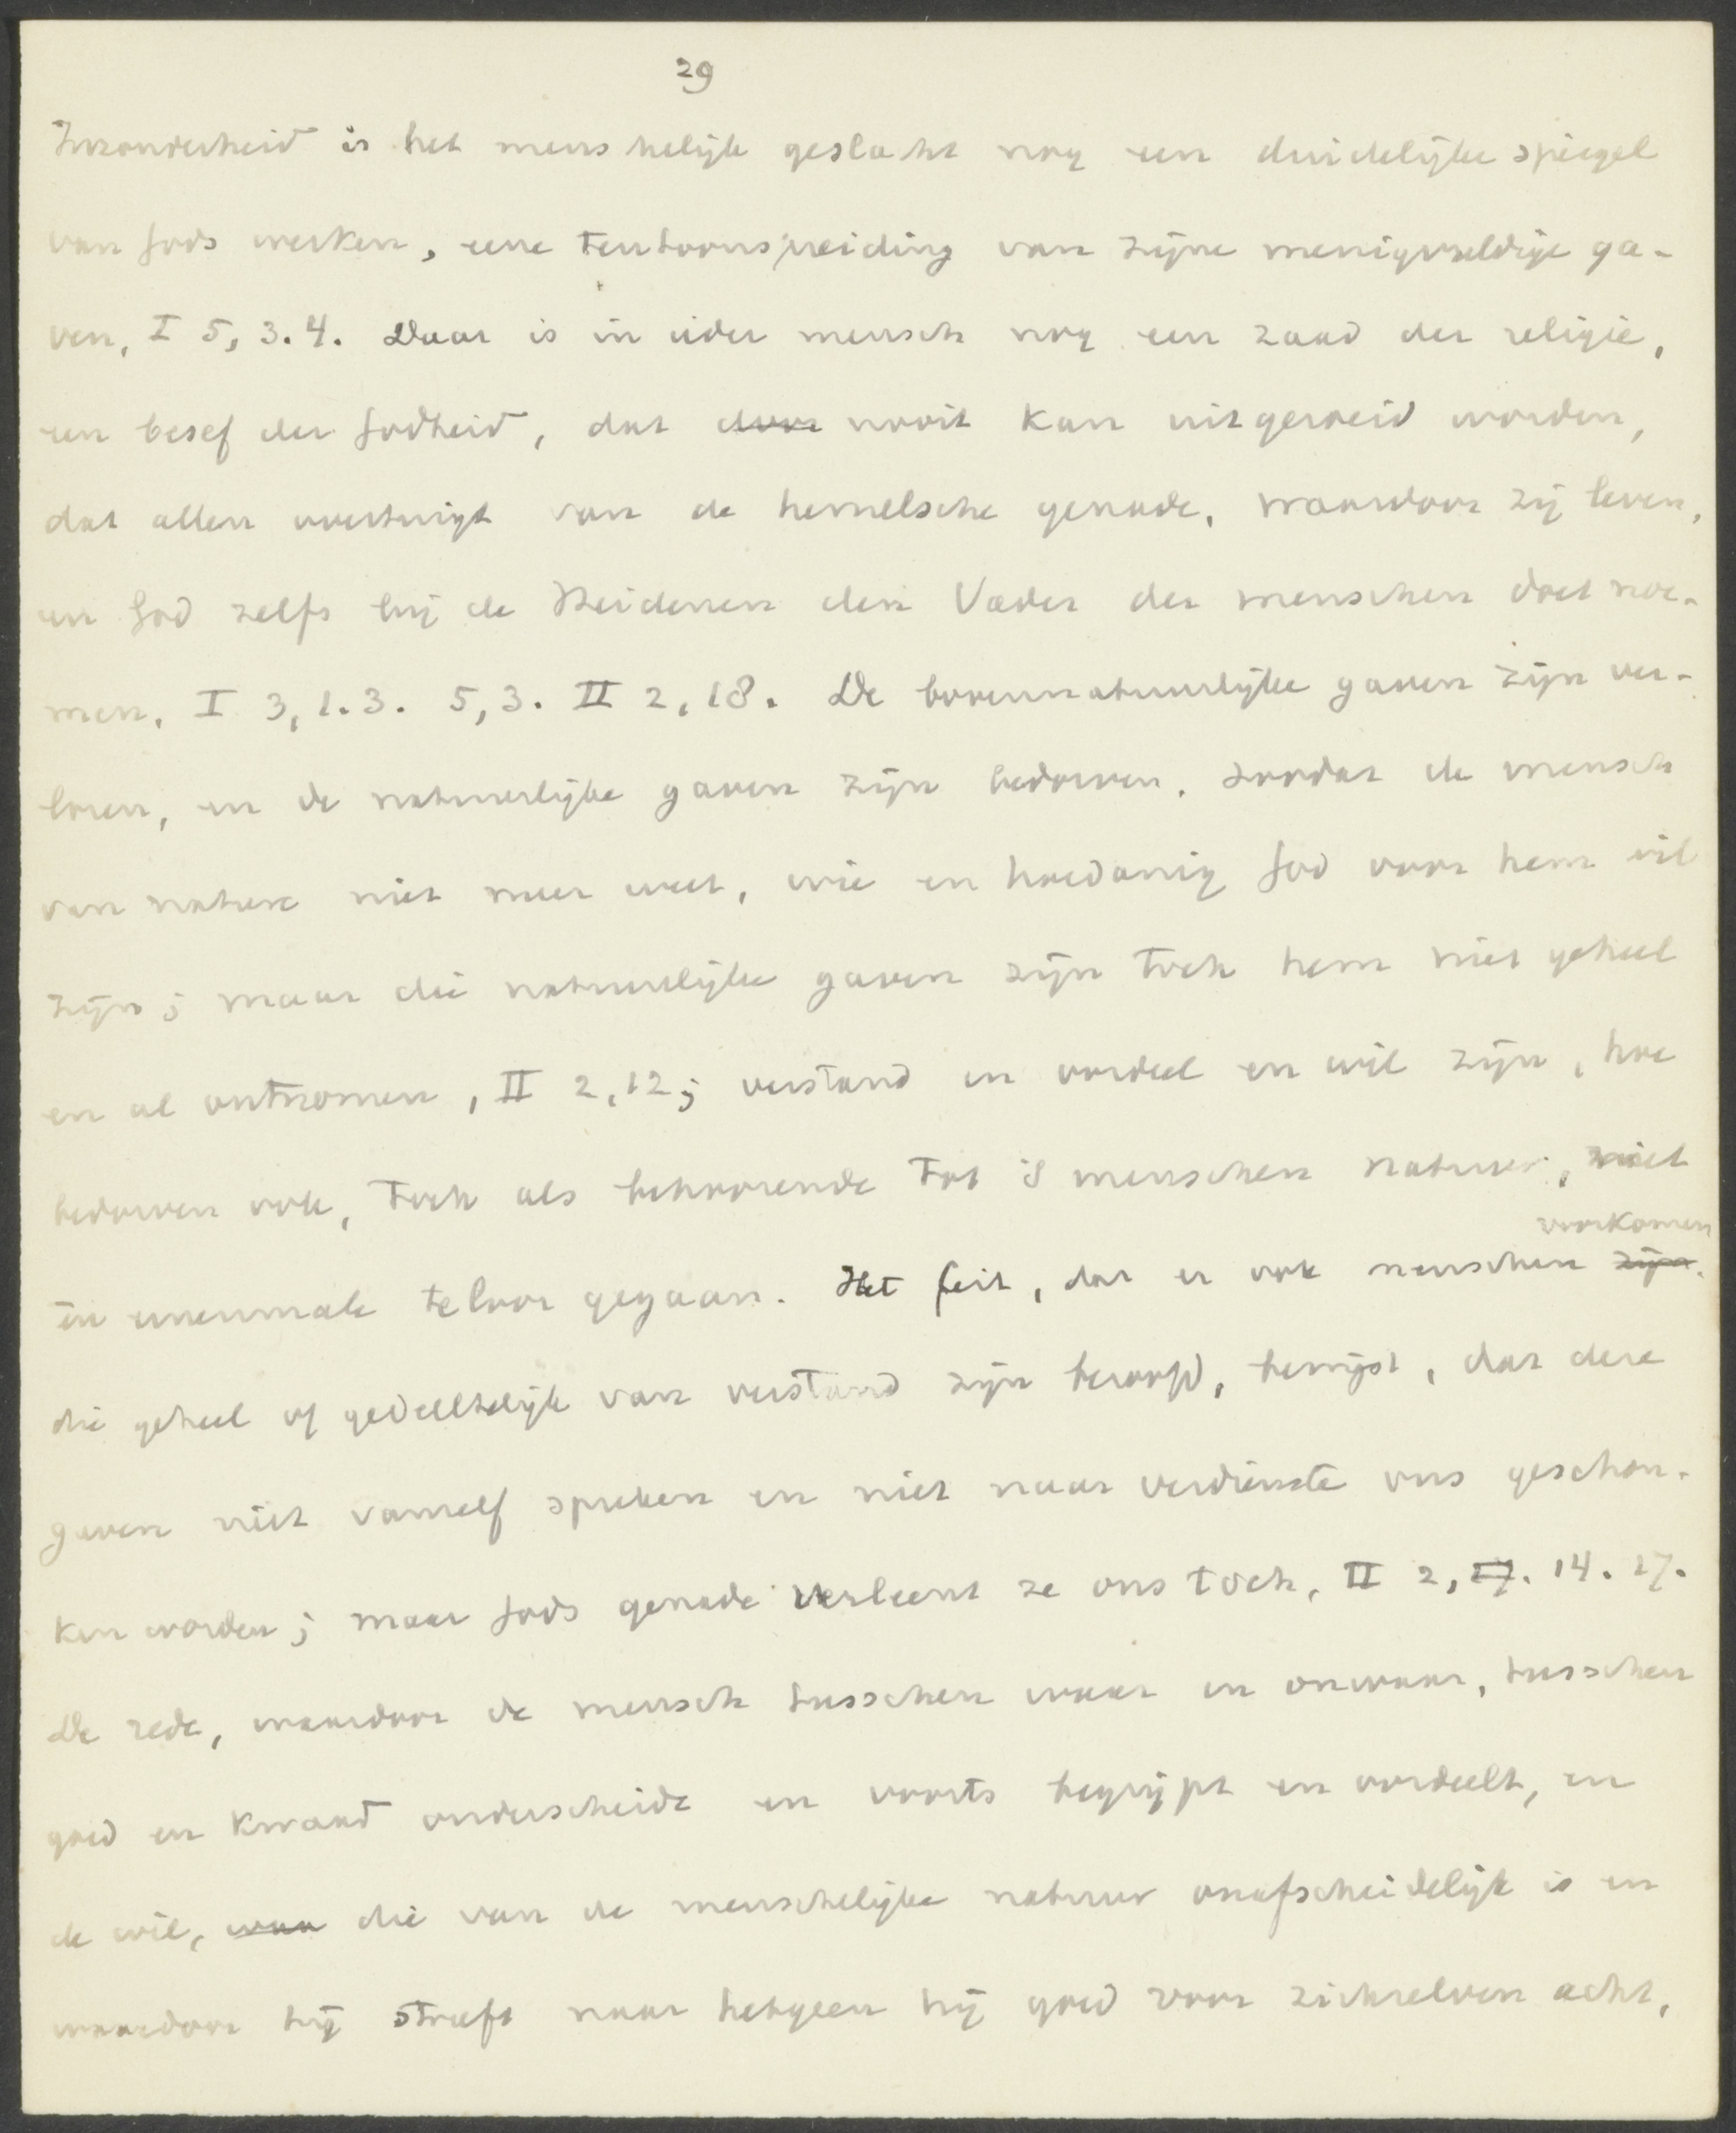 29
Inzonderheid is het menschelijk geslacht nog een duidelijke spiegel
van Gods werken, eene tentoonspreiding van zijne menigvuldige ga-
ven, I 5, 3.4. Daar is in ieder mensch nog een zaad der religie,
een besef der Godheid, dat door nooit kan uitgeroeid worden,
dat allen overtuigt van de hemelsche genade, waardoor zij leven,
en God zelfs bij de Heidenen den Vader der menschen doet noe-
men, I 3, 1.3. 5, 3. II 2, 18. De bovennatuurlijke gaven zijn ver-
loren, en de natuurlijke gaven zijn bedorven, zoodat de mensch
van nature niet meer weet, wie en hoedanig God voor hem wil
zijn; maar die natuurlijke gaven zijn toch hem niet geheel
en al ontnomen, II 2, 12; verstand en oordeel en wil zijn, hoe
bedorven ook, toch als behoorende tot 's menschen natuur, niet
voorkomen
in eenenmale teloor gegaan. Het feit, dat er ook menschen zijn
die geheel of gedeeltelijk van verstand zijn beroofd, bewijst, dat deze
gaven niet vanzelf spreken en niet naar verdienste ons geschon-
ken worden; maar Gods genade verleent ze ons toch, II 2, 17. 14. 17.
De rede, waardoor de mensch tusschen waar en onwaar, tusschen
goed en kwaad onderscheidt en voorts begrijpt en oordeelt, en
de wil, waa die van de menschelijke natuur onafscheidelijk is en
waardoor hij streeft naar hetgeen hij goed voor zichzelven acht,